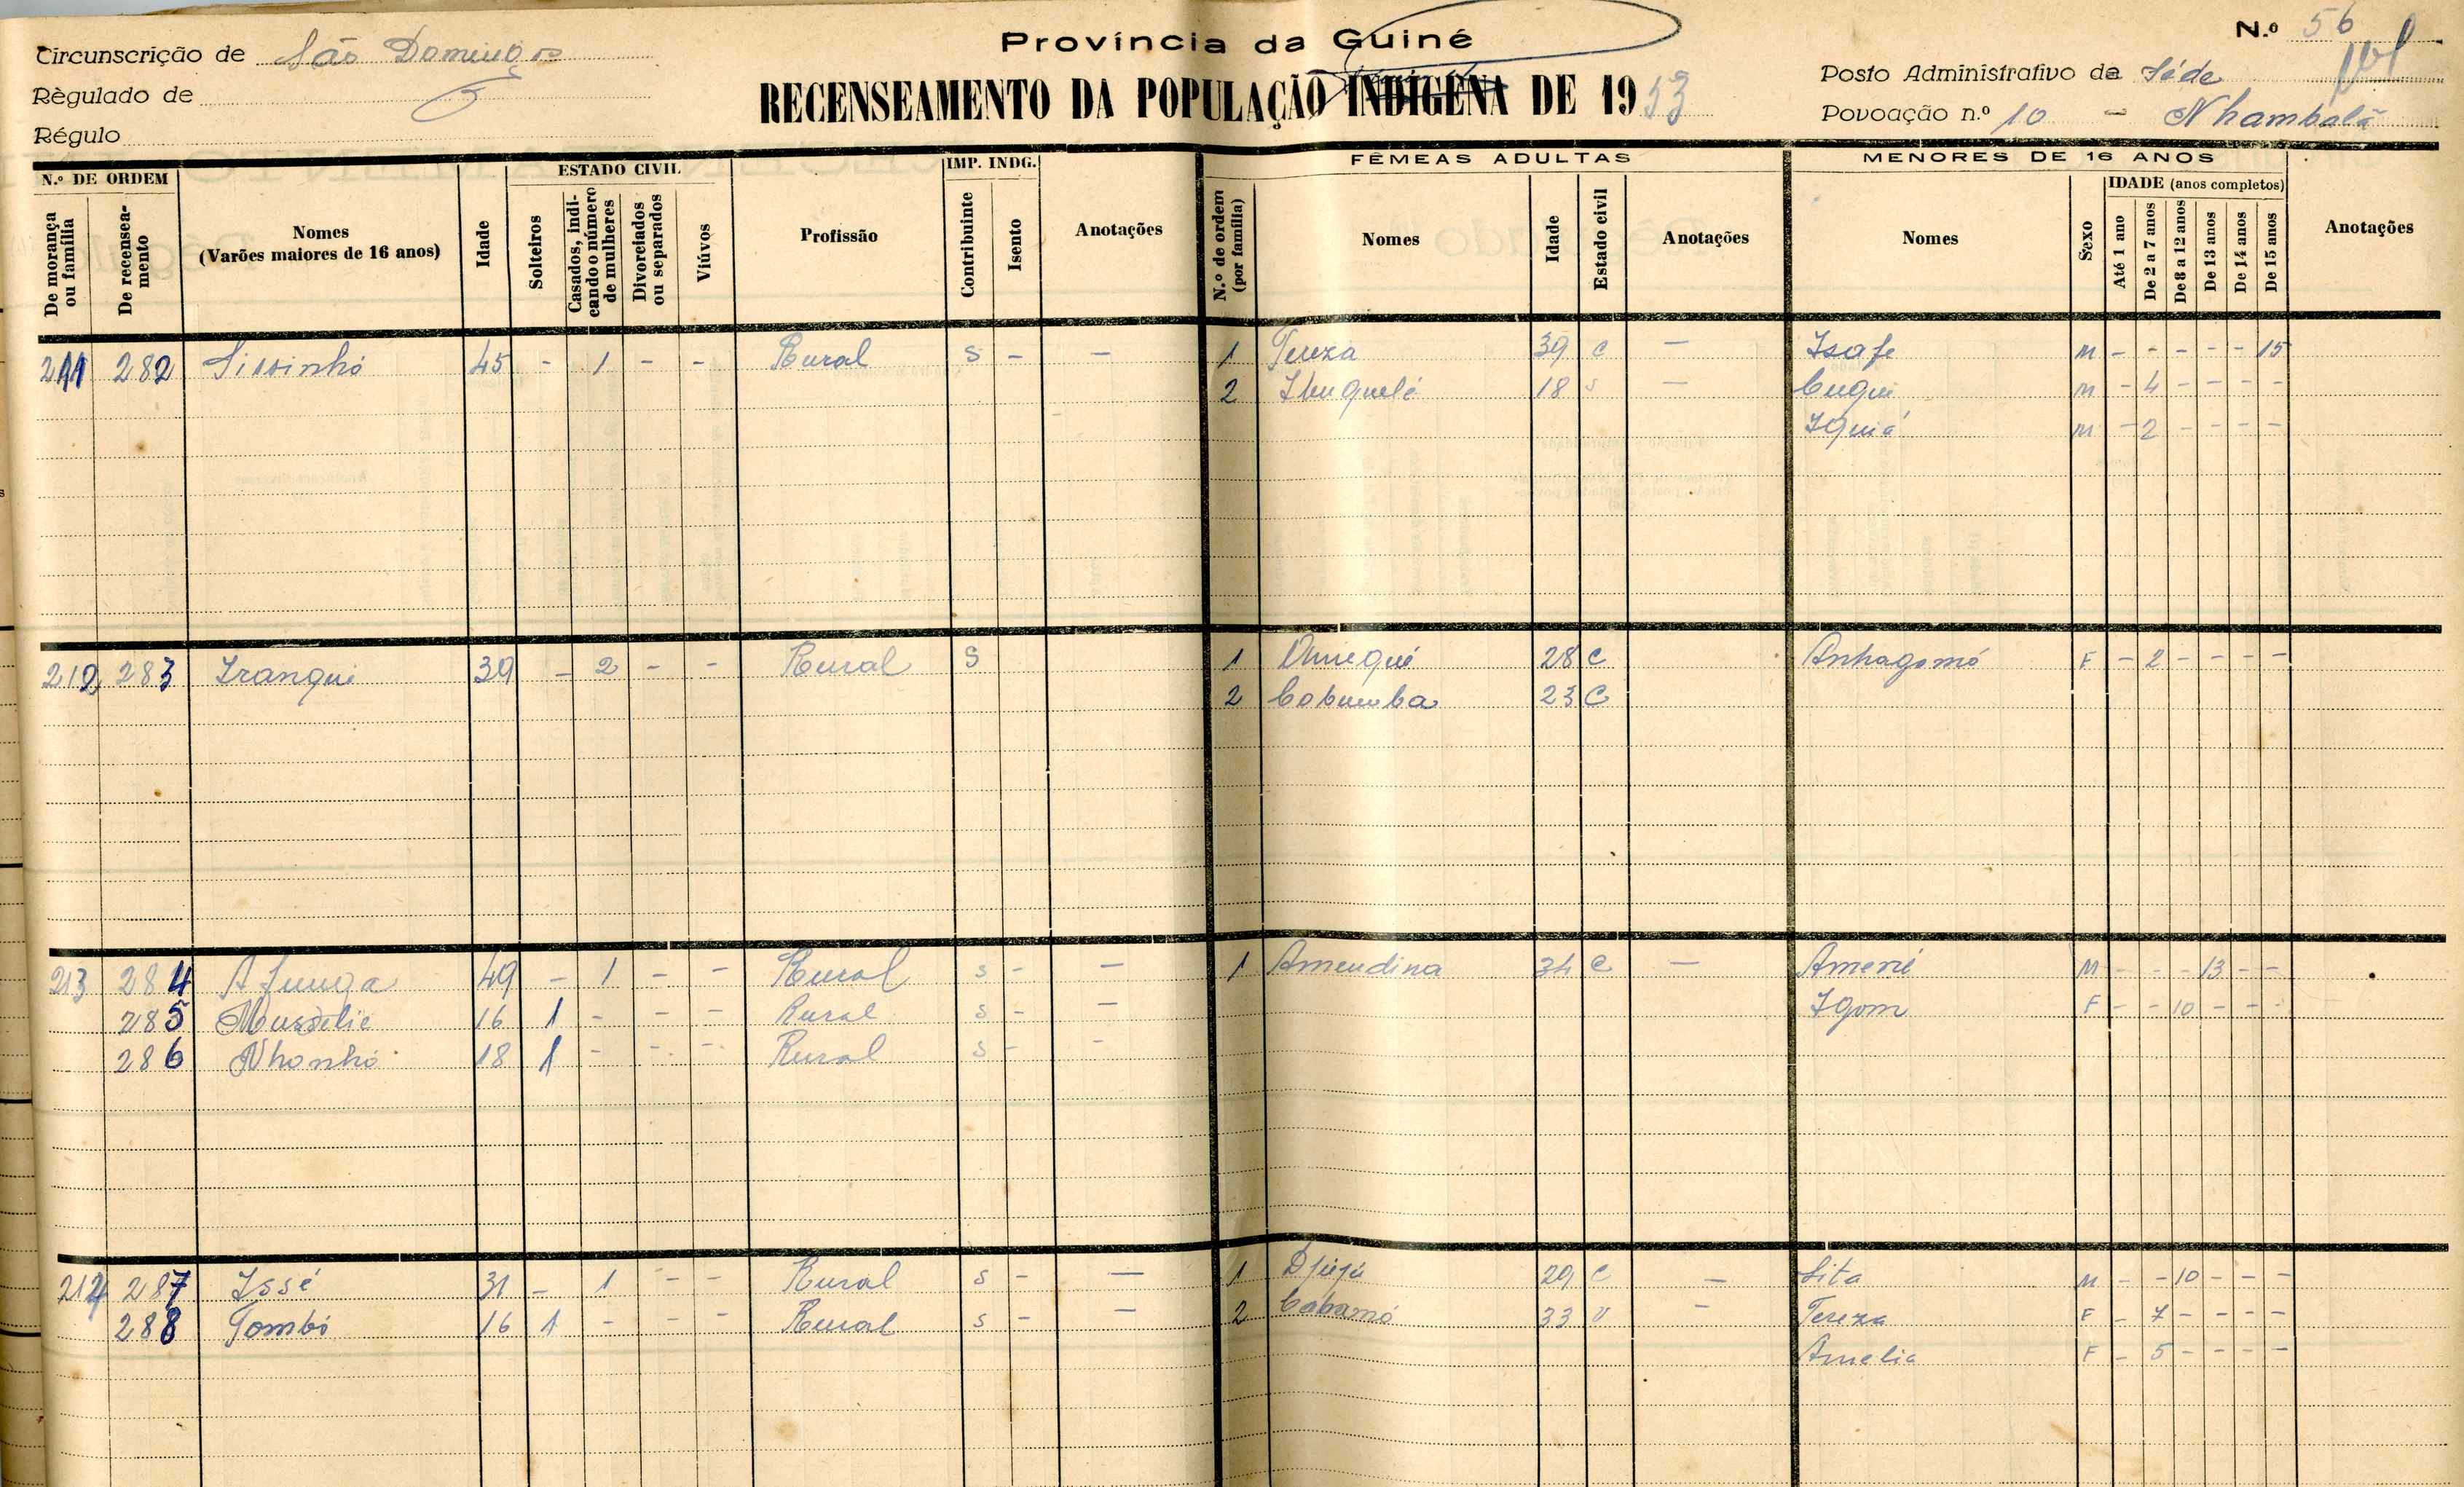 Província da Guiné
N.º 56
Circunscrição de São Domingos
RECENSEAMENTO DA POPULAÇÃO INDÍGENA DE 1953
Posto Administrativo de Séde
Règulado de
Povoação n.º 10 - Nhambalã
Régulo
N.º DE ORDEM ESTADO CIVIL IMP. INDG. FÊMEAS ADULTAS MENORES DE 16 ANOS
De morança ou família De recenseamento Nomes (Varões maiores de 16 anos) Idade Solteiros Casados, indicando o número de mulheres Divorciados ou separados Viúvos Profissão Contribuinte Isento Anotações N.º de ordem (por família) Nomes Idade Estado civil Anotações Nomes Sexo IDADE (anos completos) Até 1 ano De 2 a 7 anos De 8 a 12 anos De 13 anos De 14 anos De 15 anos Anotações
211 282 Sissinhó 45 - 1 - - Rural S - - 1 Tereza 39 c - Isafe M - - - - - 15
2 18 s - Cugui M - 4 - - - -
Iguiá M - 2 - - - -
212 283 Iranqui 39 - 2 - - Rural S 1 28 C Anhagomó F - 2 - - - -
2 Cobumba 23 C
213 284 Afunga 49 - 1 - - Rural s - - 1 Amendina 34 C - Amené M - - - 13 - -
285 Mussélie 16 1 - - - Rural s - - Igom F - - 10 - - -
286 Nhonhó 18 1 - - - Rural s - -
214 287 Issé 31 - 1 - - Rural s - - 1 Djújú 29 C - Sita M - - 10 - - -
288 Tombó 16 1 - - - Rural s - - 2 Cobamó 33 V - Tereza F - 7 - - - -
Amelia F - 5 - - - -